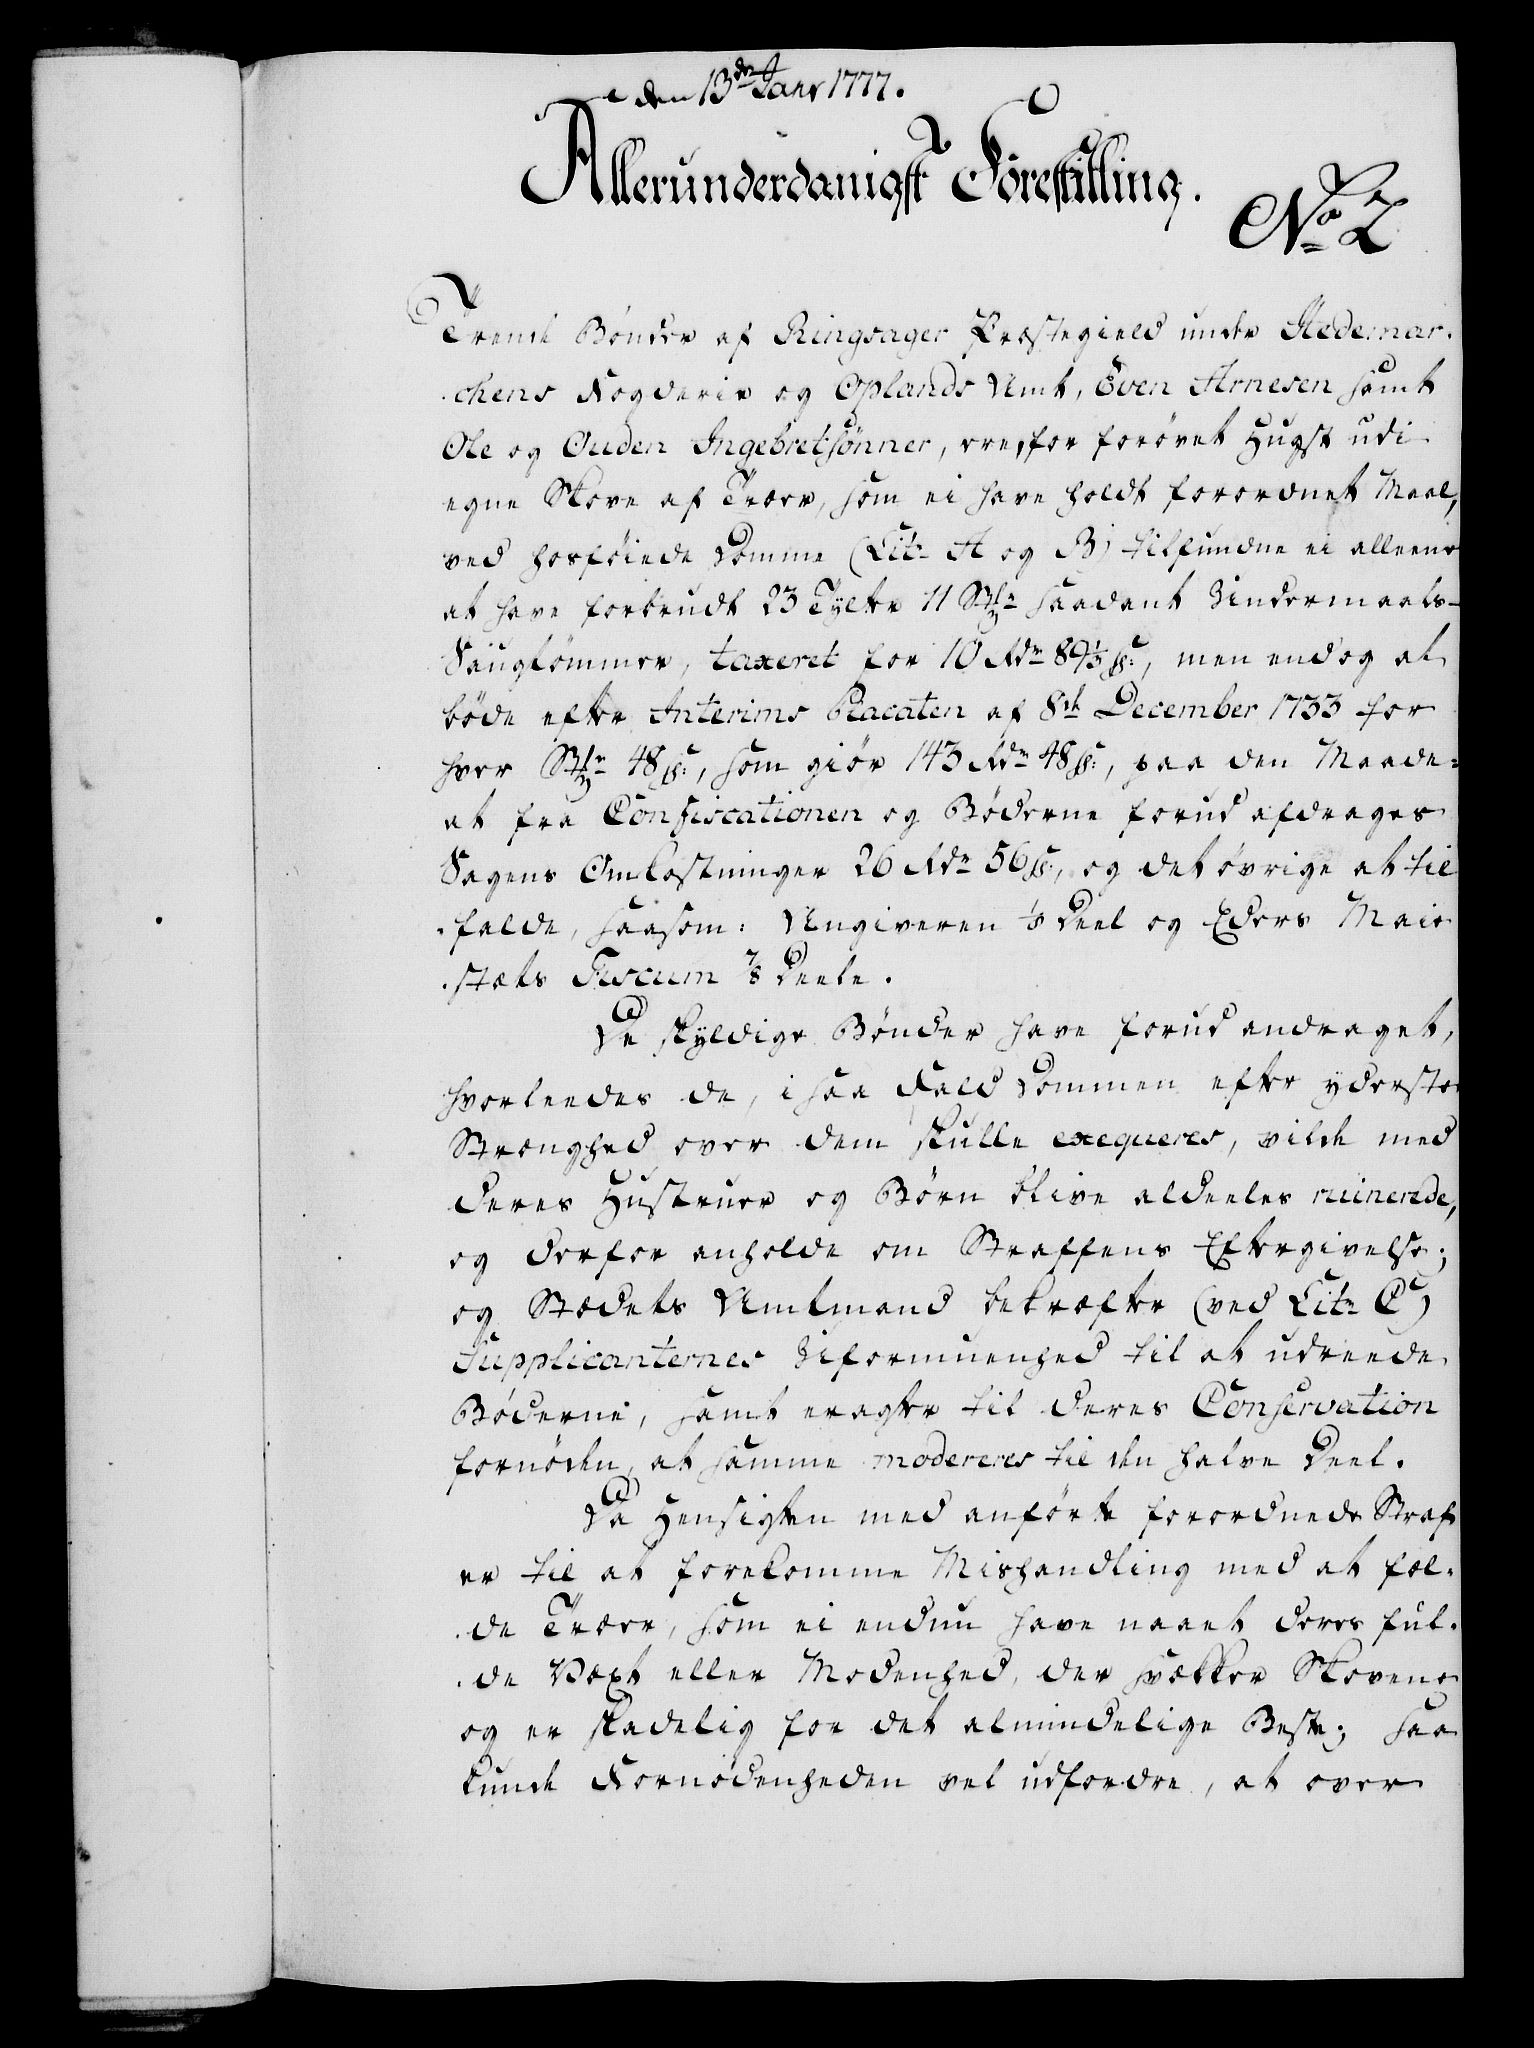 den 13de Janr 1777.
Allerunderdanigst Forestilling.
No 2
Trende Bønder af Ringsager Præstegield under Hedemar-
chens Fogderie og Oplands Amt, Even Arnesen samt
Ole og Ouden Ingebretsønner, ere, for forøvet Hugst udi
egne Skove af Træer, som ei have holdt forordnet Maal,
ved hosføiede Domme (Litr A og B) tilfundne ei alleene
at have forbrudt 23 Tylter 11 Stkr saadant Undermaals-
Saugtømmer, taxeret for 10 Rdr 89⅓ ß:, men endog at
bøde efter Interims Placaten af 8de December 1733 for
hver Stkr 48 ß:, som giør 143 Rdr 48 ß:, paa den Maade:
at fra Confiscationen og Bøderne forud afdrages
Sagens Omkostninger 26 Rdr 56 ß:, og det øvrige at til-
falde, saasom: Angiveren ⅛ Deel og Eders Maje-
stæts Fiscum ⅞ Deele.
De skyldige Bønder have forud andraget,
hvorleedes de, i saa Fald Dommen efter yderste
Strænghed over dem skulle exequeres, vilde med
deres Hustruer og Børn blive aldeeles ruinerede,
og derfor anholde om Straffens Eftergivelse;
og Stædets Amtmand bekræfter (ved Litr C)
Supplicanternes Uformuenhed til at udreede
Bøderne, samt eragter til deres Conservation
fornøden, at samme modereres til den halve Deel.
Da Hensigten med anførte forordnede Straf
er til at forekomme Mishandling med at fæl-
de Træer, som ei endnu have naaet deres ful-
de Væxt eller Modenhed, der svækker Skovene
og er skadelig for det almindelige Beste; saa
kunde Fornødenheden vel udfordre, at over